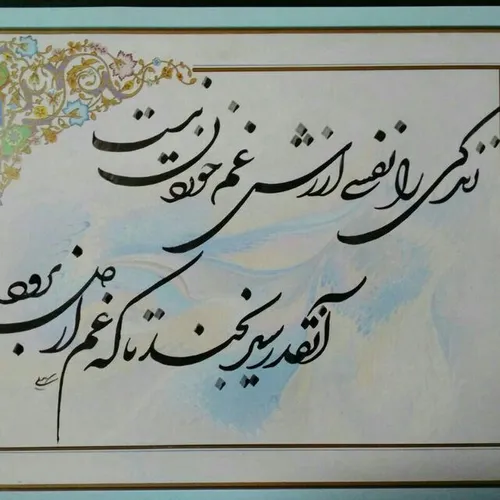 زندگی را نفسی ارزش غم خوردن نیست
آنقدر سیر بخند تا که غم از دل برود